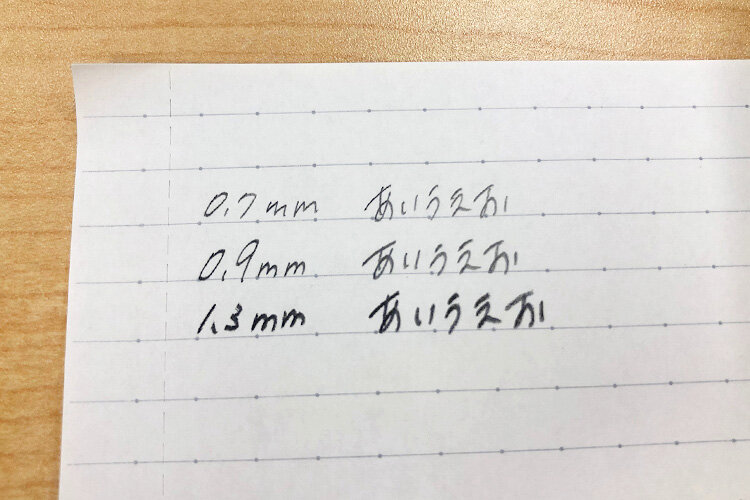 0.7mm あいうえお
0.9mm あいうえお
1.3mm あいうえお